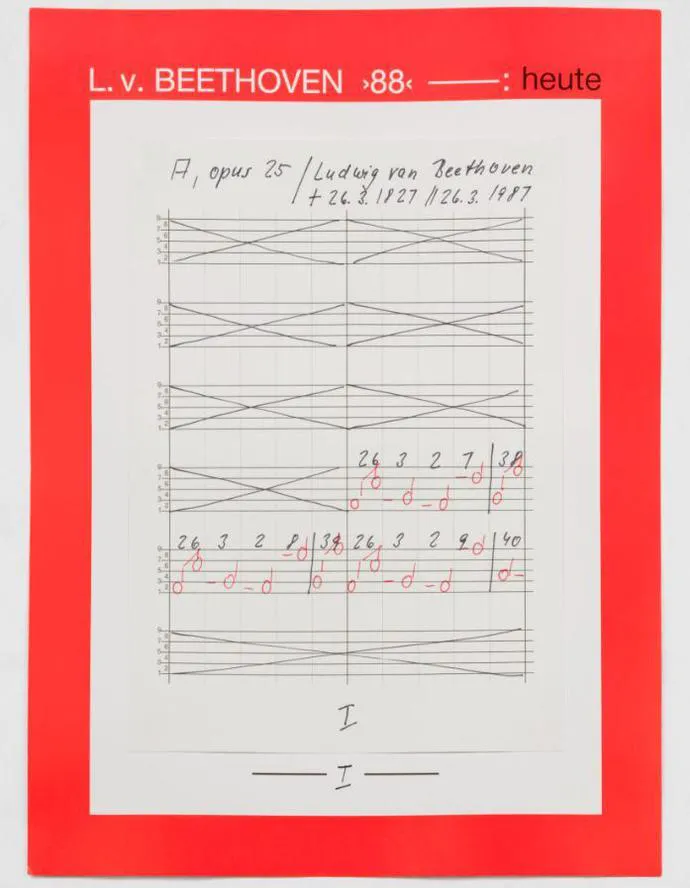 L. v. BEETHOVEN ›88‹ ——: heute
A, opus 25 / Ludwig van Beethoven
† 26. 3. 1827 // 26. 3. 1987
26 3 2 7 | 38
26 3 2 8 | 39 26 3 2 9 | 40
I
— I —